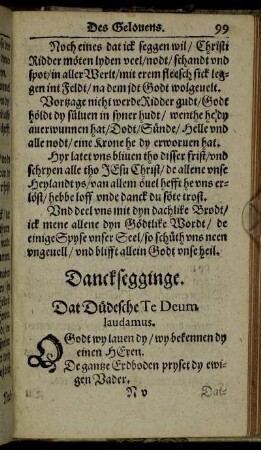 Des Gelouens. 99
Noch eines dat ick seggen wil/ Christi
Ridder möten lyden veel/nodt/schandt vnd
spot/in aller Werlt/mit erem fleesch sick leg-
gen int Feldt/na dem jdt Godt wolgeuelt.
Vortzage nicht werde Ridder gudt/Godt
höldt dy süluen in syner hudt/ wenthe he dy
auerwunnen hat/Dodt/Sünde/Helle vnd
alle nodt/eine Krone he dy erworuen hat.
Hyr latet vns bliuen tho disser frist/vnd
schryen alle tho JEsu Christ/de allene vnse
Heylandt ys/van allem öuel hefft he vns er-
löst/hebbe loff vnde danck du söte trost.
Vnd deel vns mit dyn dachlike Brodt/
ick mene allene dyn Gödtlike Wordt/ de
einige Spyse vnser Seel/so schüth vns neen
vngeuell/vnd blifft allein Godt vnse heil.
Dancksegginge.
Dat Düdesche Te Deum
laudamus.
O Godt wy lauen dy/wy bekennen dy
einen HEren.
De gantze Erdboden pryset dy ewi-
gen Vader.
N v Dat-